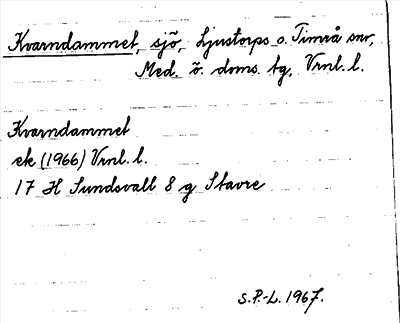 Kvarndammet, sjö, Ljustorps o. Timrå snr,
Med. ö. doms. tg, Vrnl. l.
Kvarndammet
ek (1966) Vrnl. l.
17 H Sundsvall 8 g Stavre
S.P.-L. 1967.